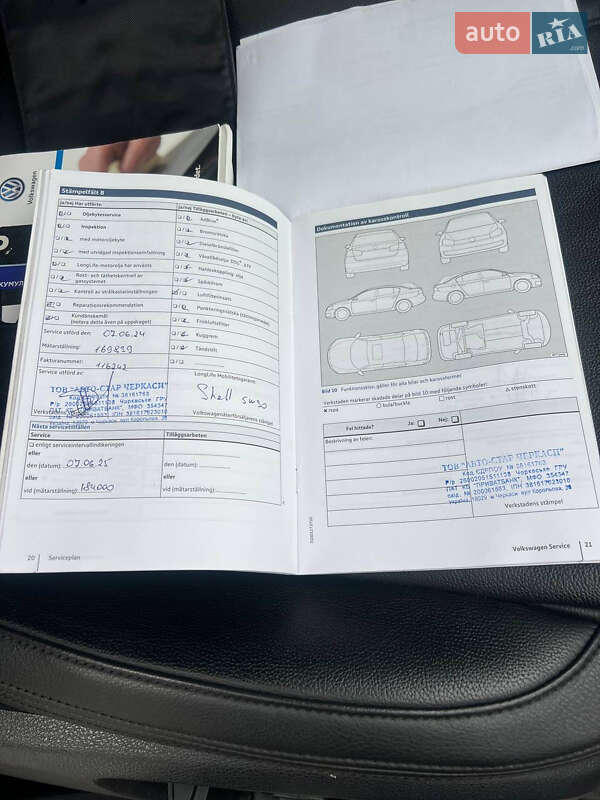 auto RIA.com
Volkswagen
Stämpelfält 8
Dokumentation av karosskontroll
ja/nej Har utförts:
ja/nej Tilläggsarbeten
Oljebytesservice
Inspektion
Bromsvätska
med motoroljebyte
Dieselbränslefilter
med utvidgad inspektionsomfattning
LongLife-motorolja har använts
Rost- och täthetskontroll av
gassystemet
Spåkdrem
Kontroll av strålkastarinställningen
Luftfilterinsats
Reparationsrekommendation
Kundönskemål
(notera detta även på uppdraget)
Friskluftsfilter
Service utförd den: 07.06.24
Kuggrem
Mätarställning: 169839
Tändstift
Fakturanummer: 116242
Service utförd av:
LongLife Mobilitetsgaranti
Shell 5w30
ТОВ "АВТО-СТАР ЧЕРКАСИ"
Verkstadens
Nästa servicetillfällen
Service
Tilläggsarbeten
enligt serviceintervallindikeringen
eller
den (datum): 07.06.25
den (datum):
eller
eller
vid (mätarställning): 184000
vid (mätarställning):
20 Serviceplan
Bild 10 Funktionsskiss gäller för alla bilar och karossformer
Verkstaden markerar skadade delar på bild 10 med följande symboler:
x repa
o bula/buckla
r rost
∆ stenskott
Fel hittade? Ja: Nej:
Beskrivning av felen:
ТОВ "АВТО-СТАР ЧЕРКАСИ"
Код ЄДРПОУ № 38161763
Р/р 26002051511138 Черкаське ГРУ
ПАТ КБ "ПРИВАТБАНК", МФО 354347
Verkstadens stämpel
Volkswagen Service 21